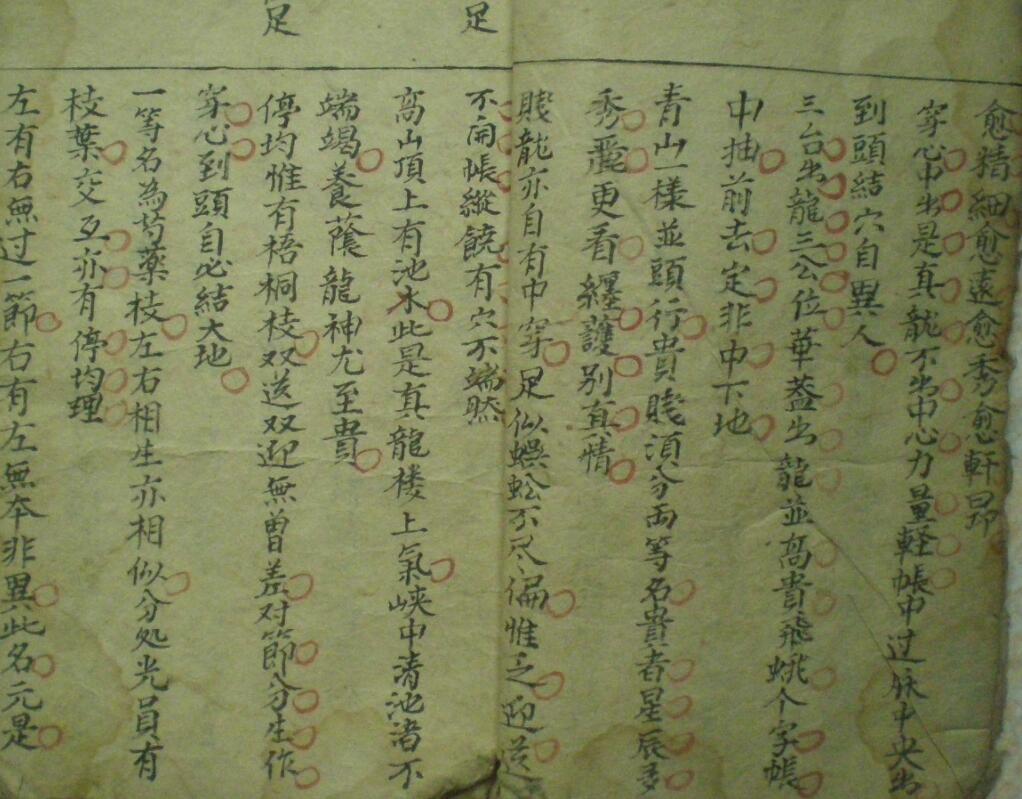 愈精細愈遠愈秀愈軒昂
穿心中出是真龍不出中心力量軽帳中过脉中央出
到頭結穴自異人
三台出龍三公位華蓋出龍並高貴飛蛾个字帳
中抽前去定非中下地
青山一樣並頭行貴賤須分両等名貴者星辰多
秀麗更看纏護别真情
賤龍亦自有中穿足似蜈蚣不尽偏惟乏迎送
足
不開帳縱饒有穴不端然
高山頂上有池水此是真龍楼上氣峡中清池渚不
端竭養蔭龍神尤至貴
足
停均惟有梧桐枝双送双迎無曽差对節分生作
穿心到頭自必結大地
一等名為芍藥枝左右相生亦相似分処光員有
枝葉交互亦有停均理
左有右無过一節右有左無本非異此名元是